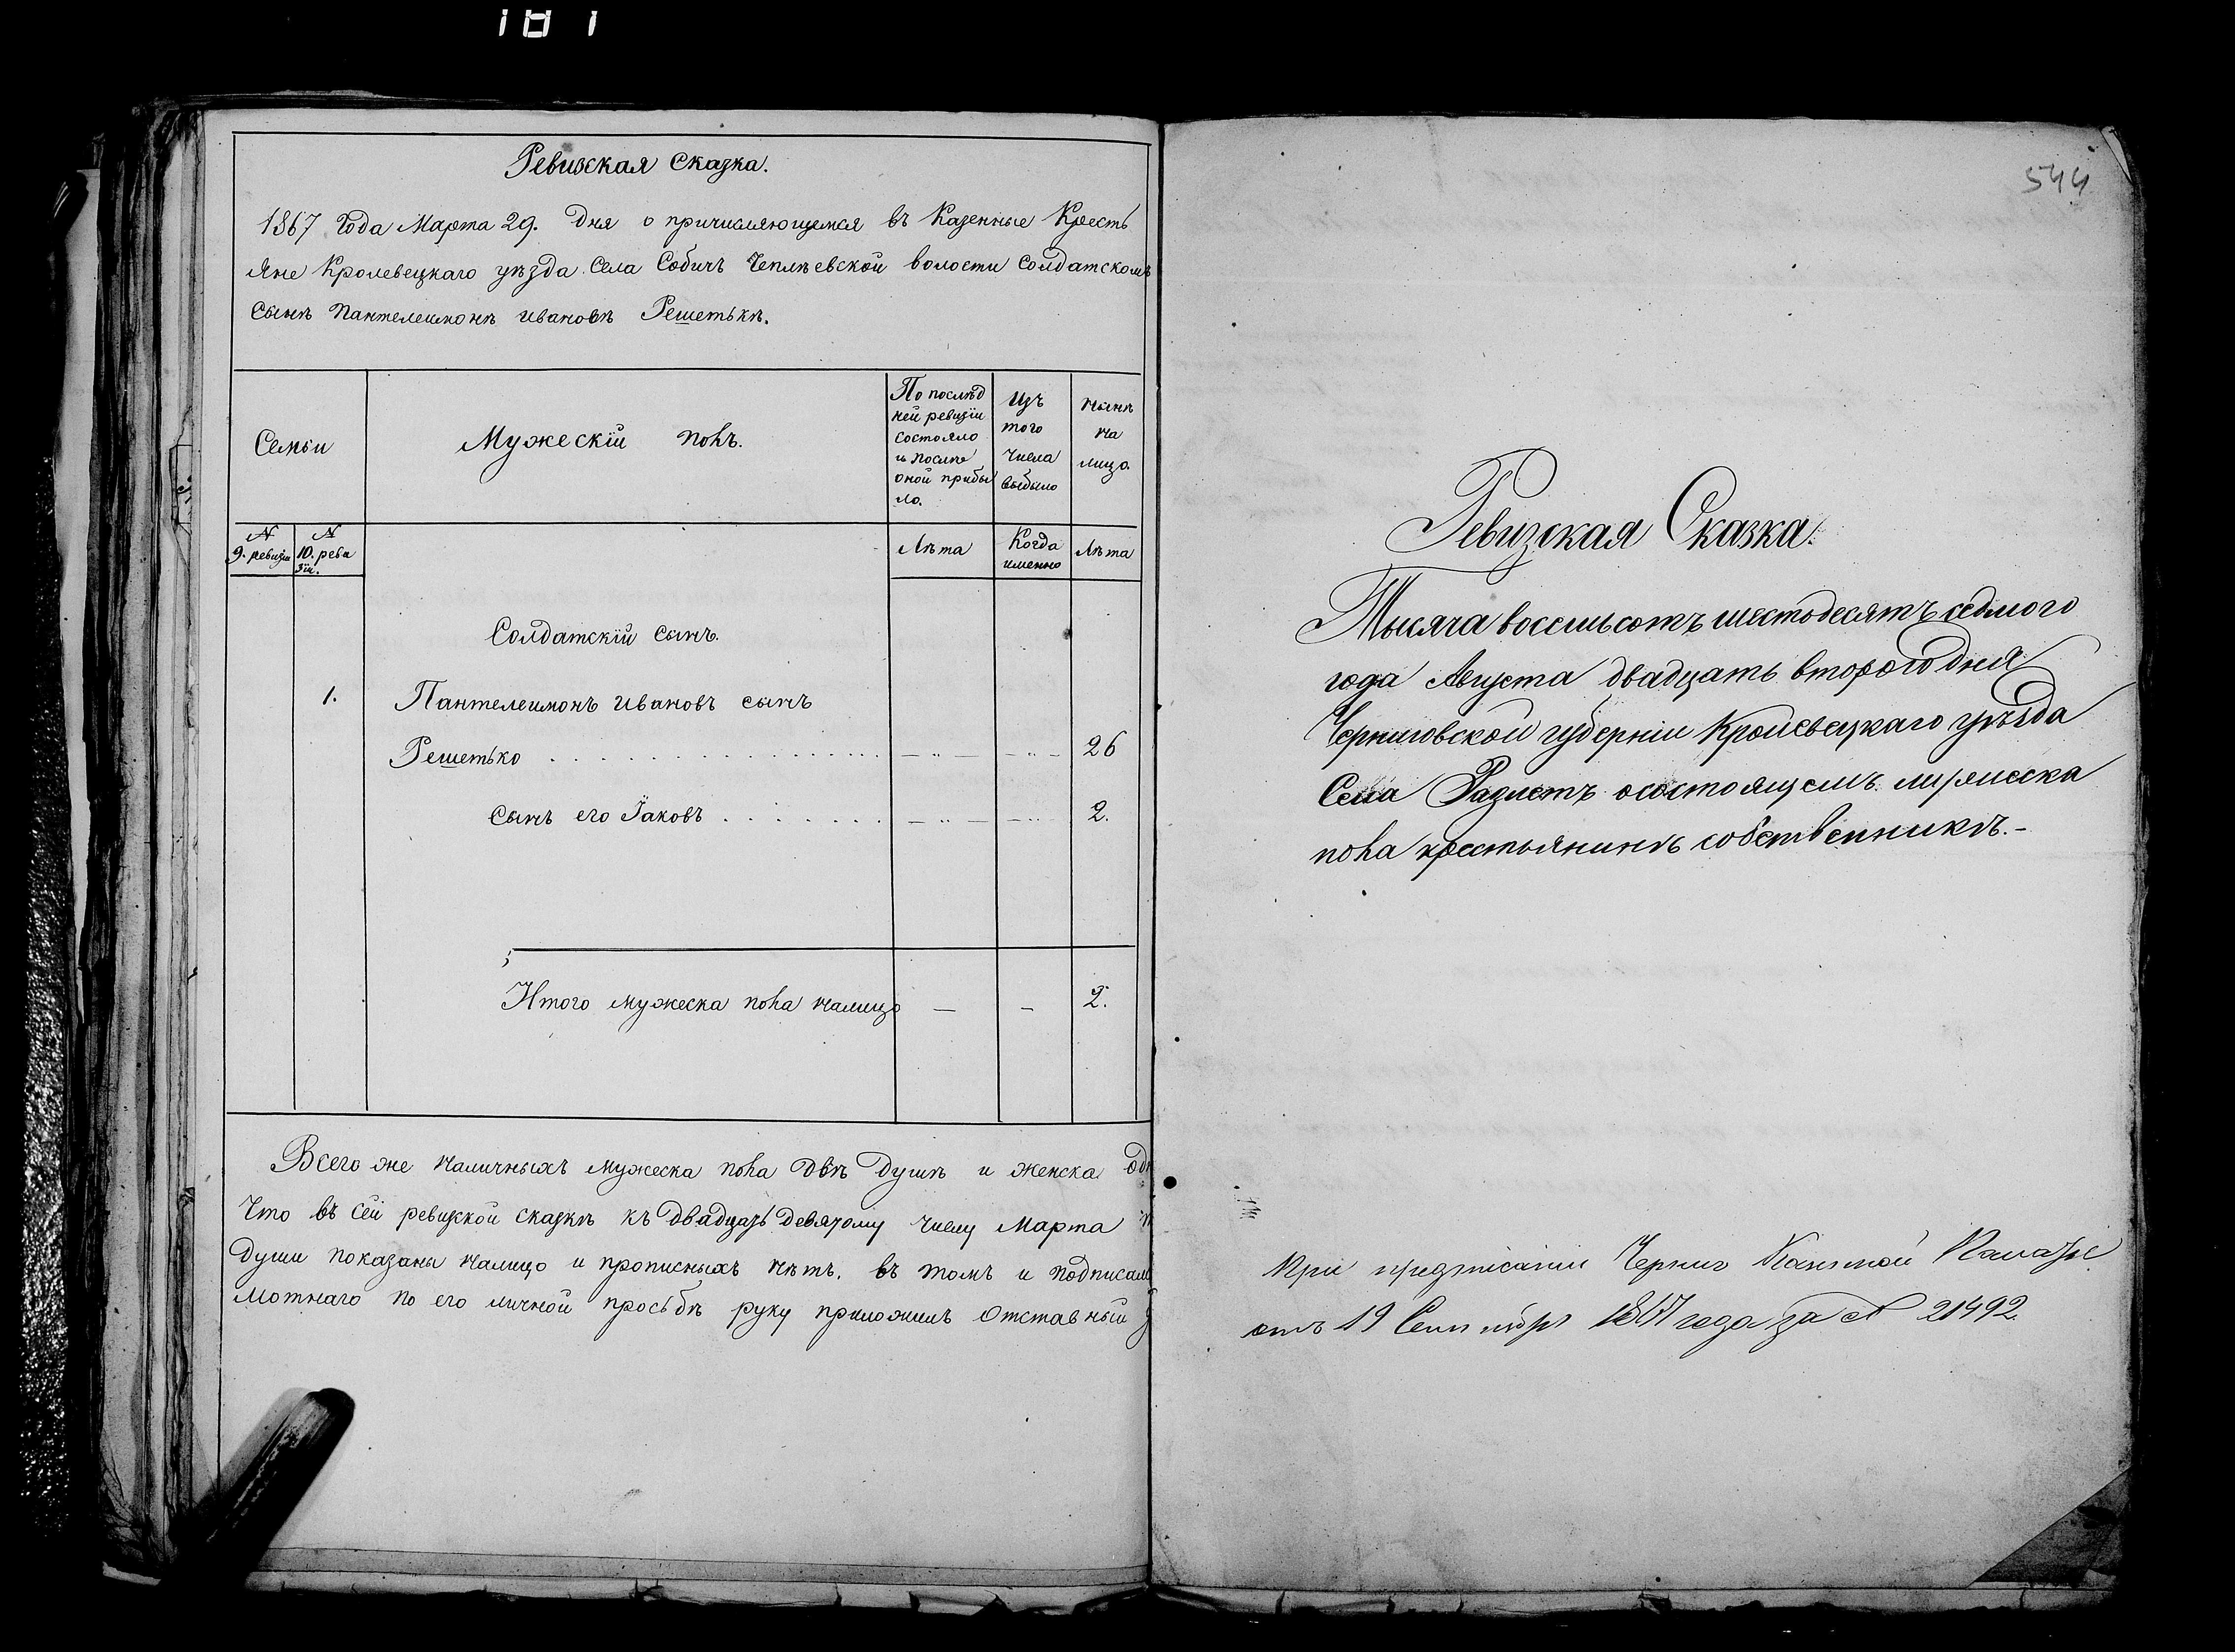 Ревизская Сказка.
1867 Года Марта 29. дня о причисляющемся въ Казенные Кресть
яне Кролевецкаго уѣзда Села Собичъ Чеплѣевской волости Солдатскомъ
Сынѣ Пантелеимонѣ Ивановѣ Решетькѣ.
Семьи
Мужескій полъ.
По послѣд
ней ревизіи
состояло
и послѣ
оной прибы
ло.
Изъ
того
числа
выбыло
Нынѣ
на
лицо.
N
9. ревизіи
N
10. реви
зіи.
Лѣта
Когда
именно
Лѣта
Солдатскій сынъ.
1. Пантелеимонъ Ивановъ сынъ
Решетько 26
Сынъ его Іаковъ 2.
Итого мужеска пола налицо — — 2.
Всего же наличныхъ мужеска пола двѣ души и женска
Что въ сей ревизской сказкѣ къ двадцать девятому числу Марта
души показаны налицо и прописныхъ нѣтъ. въ томъ и подписал
мотнаго по его личной просьбѣ руку приложилъ Отставный
544
Ревизская Сказка.
Тысяча восемьсотъ шестодесятъ седмого
года Августа двадцать второго дня
Черниговской губерніи Кролевецкаго уѣзда
Села Разлетъ осостоящемъ мужеска
пола крестьянинѣ собственникѣ.-
При предписаніи Черниг Казенной Палаты
отъ 19 Сентября 1867 года за N 21492.